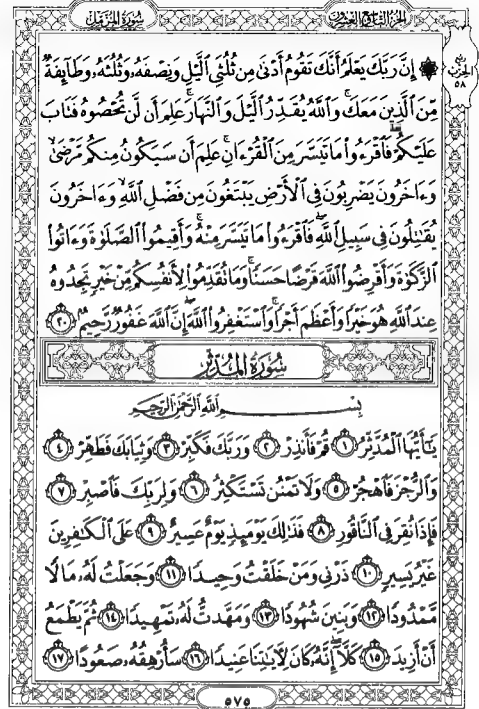 الجزء التاسع والعشرون
سورة المزمل
ربع
الحزب
٥٨
۞ إِنَّ رَبَّكَ يَعْلَمُ أَنَّكَ تَقُومُ أَدْنَىٰ مِن ثُلُثَيِ ٱلَّيْلِ وَنِصْفَهُۥ وَثُلُثَهُۥ وَطَآئِفَةٌ
مِّنَ ٱلَّذِينَ مَعَكَ ۚ وَٱللَّهُ يُقَدِّرُ ٱلَّيْلَ وَٱلنَّهَارَ ۚ عَلِمَ أَن لَّن تُحْصُوهُ فَتَابَ
عَلَيْكُمْ ۖ فَٱقْرَءُوا۟ مَا تَيَسَّرَ مِنَ ٱلْقُرْءَانِ ۚ عَلِمَ أَن سَيَكُونُ مِنكُم مَّرْضَىٰ ۙ
وَءَاخَرُونَ يَضْرِبُونَ فِى ٱلْأَرْضِ يَبْتَغُونَ مِن فَضْلِ ٱللَّهِ ۙ وَءَاخَرُونَ
يُقَٰتِلُونَ فِى سَبِيلِ ٱللَّهِ ۖ فَٱقْرَءُوا۟ مَا تَيَسَّرَ مِنْهُ ۚ وَأَقِيمُوا۟ ٱلصَّلَوٰةَ وَءَاتُوا۟
ٱلزَّكَوٰةَ وَأَقْرِضُوا۟ ٱللَّهَ قَرْضًا حَسَنًا ۚ وَمَا تُقَدِّمُوا۟ لِأَنفُسِكُم مِّنْ خَيْرٍ تَجِدُوهُ
عِندَ ٱللَّهِ هُوَ خَيْرًا وَأَعْظَمَ أَجْرًا ۚ وَٱسْتَغْفِرُوا۟ ٱللَّهَ ۖ إِنَّ ٱللَّهَ غَفُورٌ رَّحِيمٌۢ ٢٠
سورة المدثر
بِسْمِ ٱللَّهِ ٱلرَّحْمَٰنِ ٱلرَّحِيمِ
يَٰٓأَيُّهَا ٱلْمُدَّثِّرُ ١ قُمْ فَأَنذِرْ ٢ وَرَبَّكَ فَكَبِّرْ ٣ وَثِيَابَكَ فَطَهِّرْ ٤
وَٱلرُّجْزَ فَٱهْجُرْ ٥ وَلَا تَمْنُن تَسْتَكْثِرُ ٦ وَلِرَبِّكَ فَٱصْبِرْ ٧
فَإِذَا نُقِرَ فِى ٱلنَّاقُورِ ٨ فَذَٰلِكَ يَوْمَئِذٍ يَوْمٌ عَسِيرٌ ٩ عَلَى ٱلْكَٰفِرِينَ
غَيْرُ يَسِيرٍ ١٠ ذَرْنِى وَمَنْ خَلَقْتُ وَحِيدًا ١١ وَجَعَلْتُ لَهُۥ مَالًا
مَّمْدُودًا ١٢ وَبَنِينَ شُهُودًا ١٣ وَمَهَّدتُّ لَهُۥ تَمْهِيدًا ١٤ ثُمَّ يَطْمَعُ
أَنْ أَزِيدَ ١٥ كَلَّآ ۖ إِنَّهُۥ كَانَ لِءَايَٰتِنَا عَنِيدًا ١٦ سَأُرْهِقُهُۥ صَعُودًا ١٧
٥٧٥